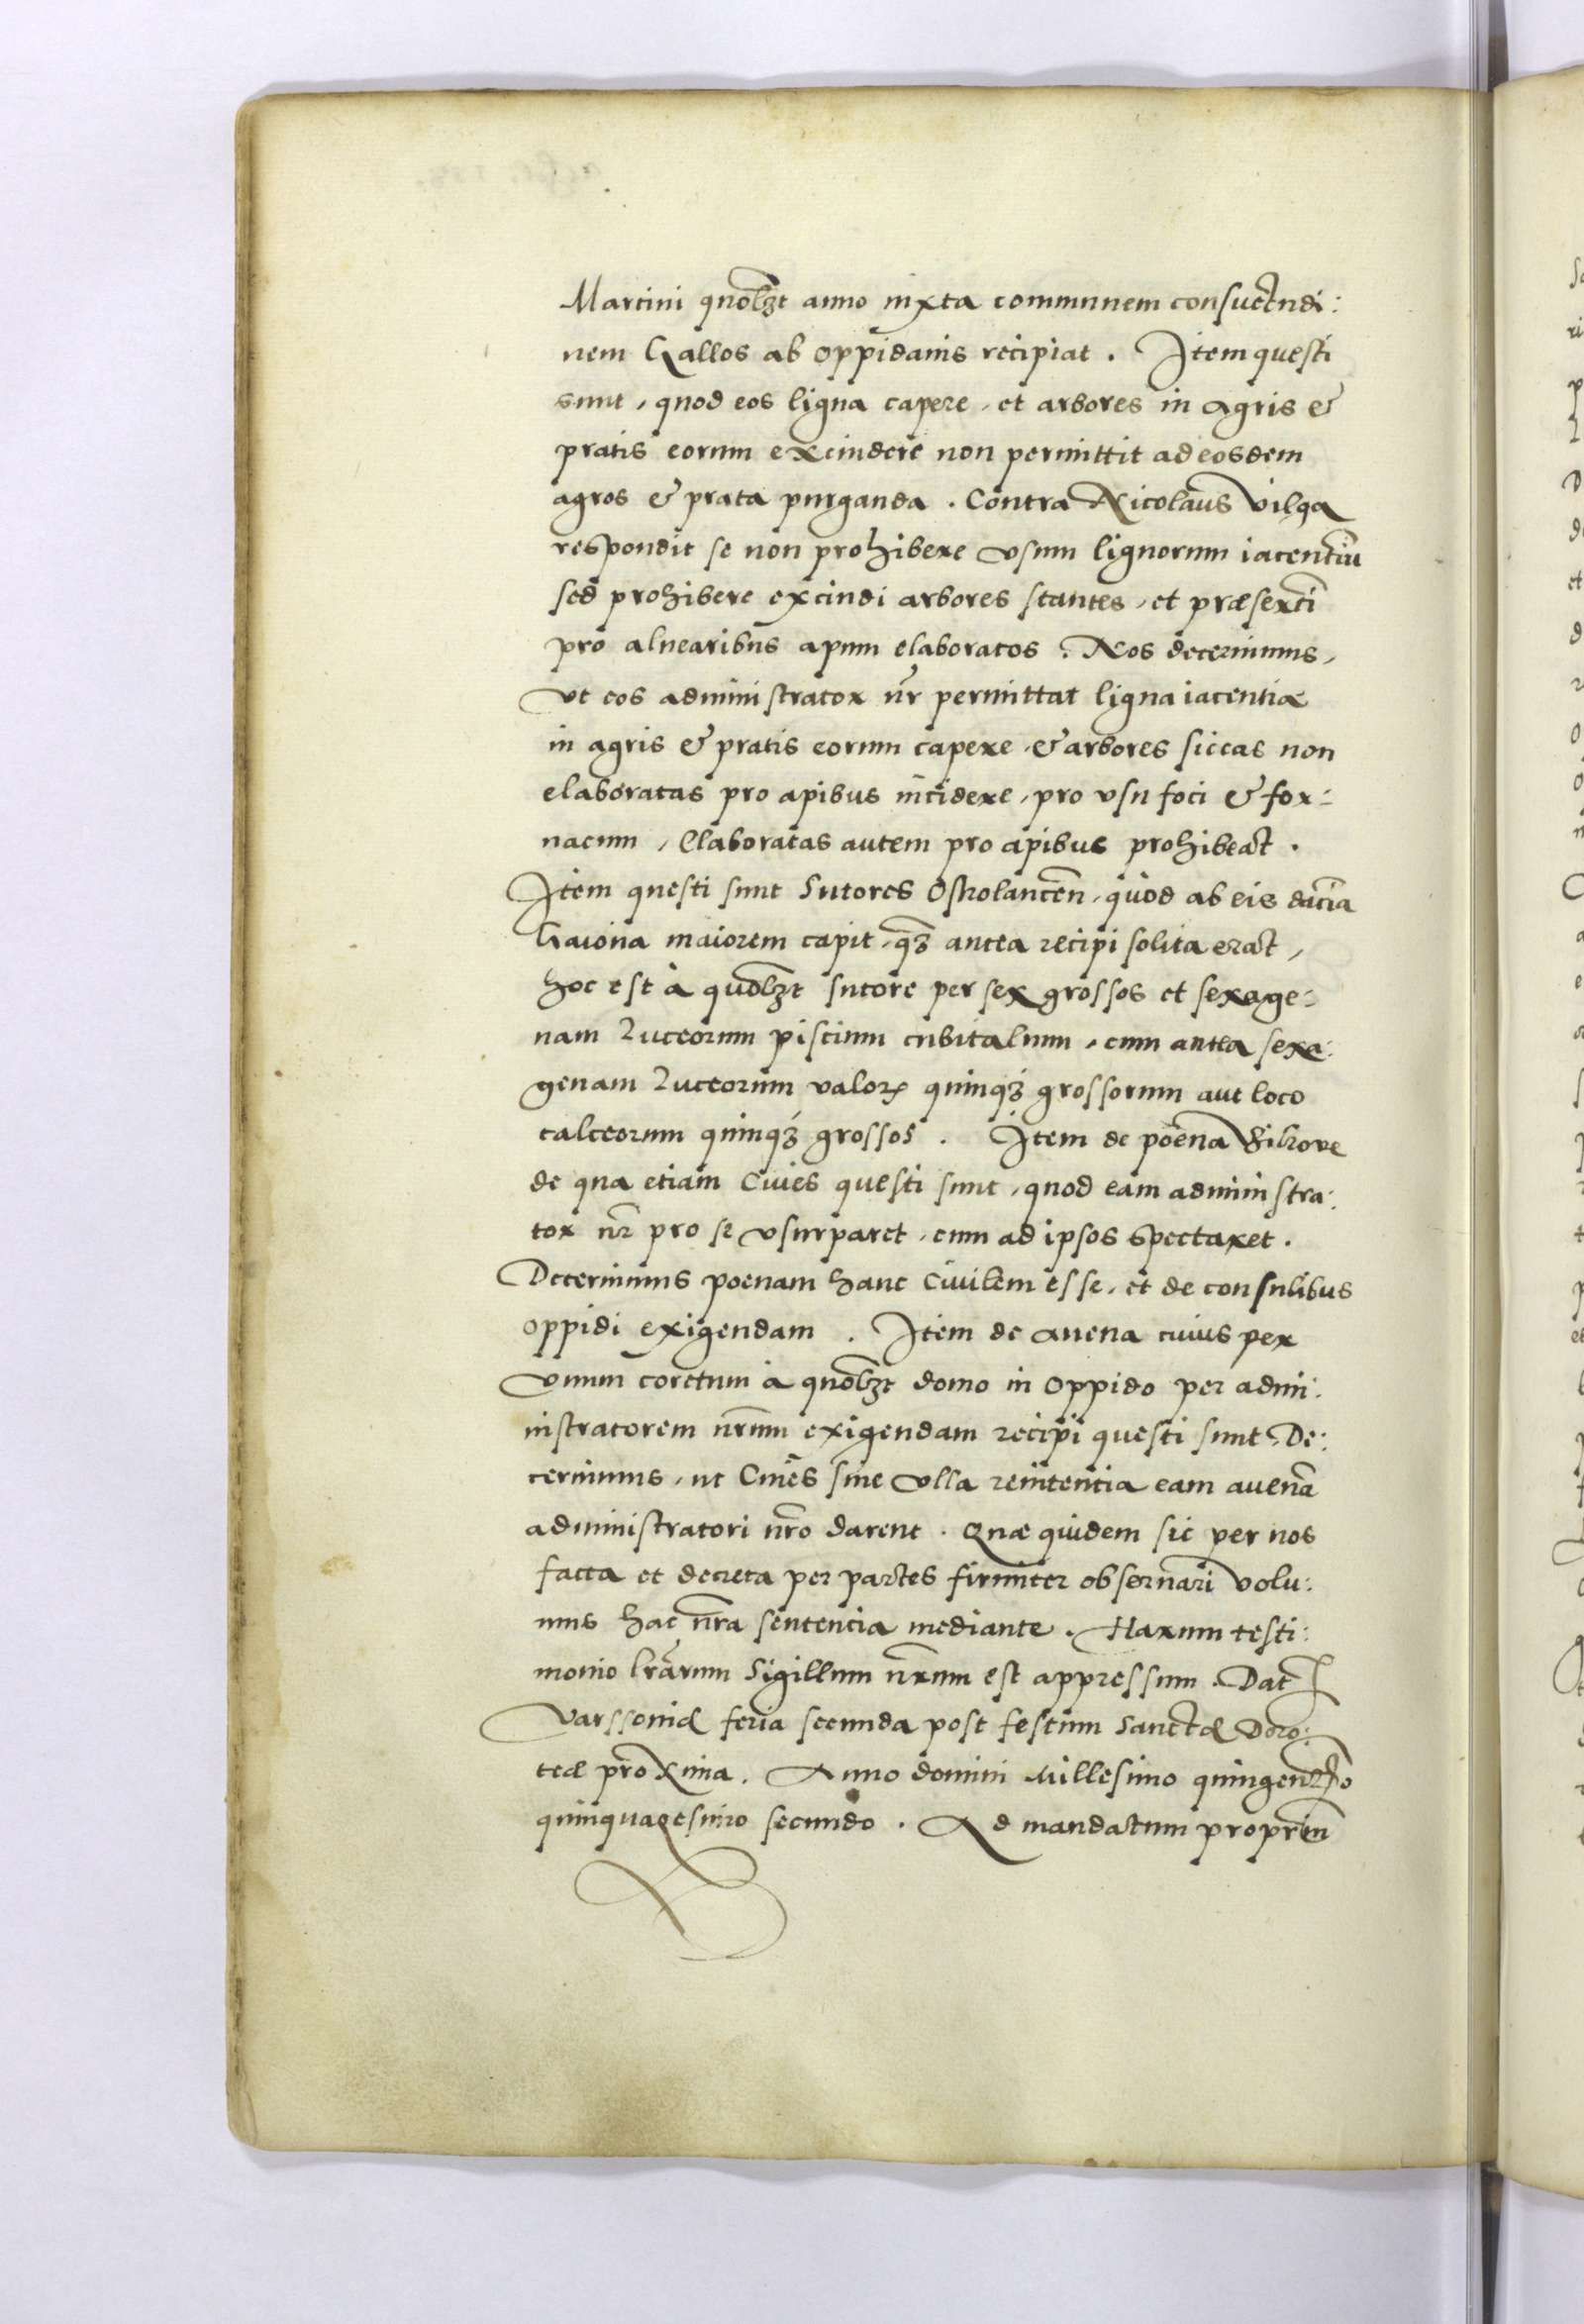 Martini quolꝫt anno iuxta communem consuetudi:
nem Gallos ab oppidanis recipiat. Item questi
sunt, quod eos ligna capere, et arbores in agris &
pratis eorum excindere non permittit ad eosdem
agros & prata purganda. Contra Nicolaus Vilga
respondit se non prohibere vsum lignorum iacentiū
sed prohibere excindi arbores stantes, et præsertī
pro aluearibus apum elaboratos. Nos decernimus,
vt eos administrator nr̄ permittat ligna iacentia
in agris & pratis eorum capere, & arbores siccas non
elaboratas pro apibus incidere, pro vsu foci & for:
nacum, Elaboratas autem pro apibus prohibeat.
Item questi sunt Sutores Ostrolancen̄, quod ab eis dacia
Gaiona maiorem capit, qꝫ antea recipi solita erat,
hoc est à quolꝫt sutore per sex grossos et sexage:
nam Luceorum piscium cubitalium, cum antea sexa:
genam Luceorum valorꝭ quinqꝫ grossorum aut loco
calceorum quinqꝫ grossos. Item de poena
de qua etiam Ciues questi sunt, quod eam administra:
tor nr̄ pro se vsurparet, cum ad ipsos spectaret.
Decernimus poenam hanc Ciuilem esse, et de consulibus
oppidi exigendam. Item de auena cuius per
vnum coretum à quolꝫt domo in oppido per admi:
nistratorem nr̄um exigendam recipi questi sunt. De:
cernimus, ut Ciues sine vlla renitentia eam auenā
administratori nr̄o darent. Quæ quidem sic per nos
facta et decreta per partes firmiter obseruari volu:
mus hac nr̄a sententia mediante. Harum testi:
monio lr̄arum Sigillum nr̄um est appressum. Dat
Varssouiæ feria secunda post festum Sanctæ Doro:
teæ proxima. Anno domini Millesimo quingentesīo
quinquagesimo secundo. Ad mandatum proprium